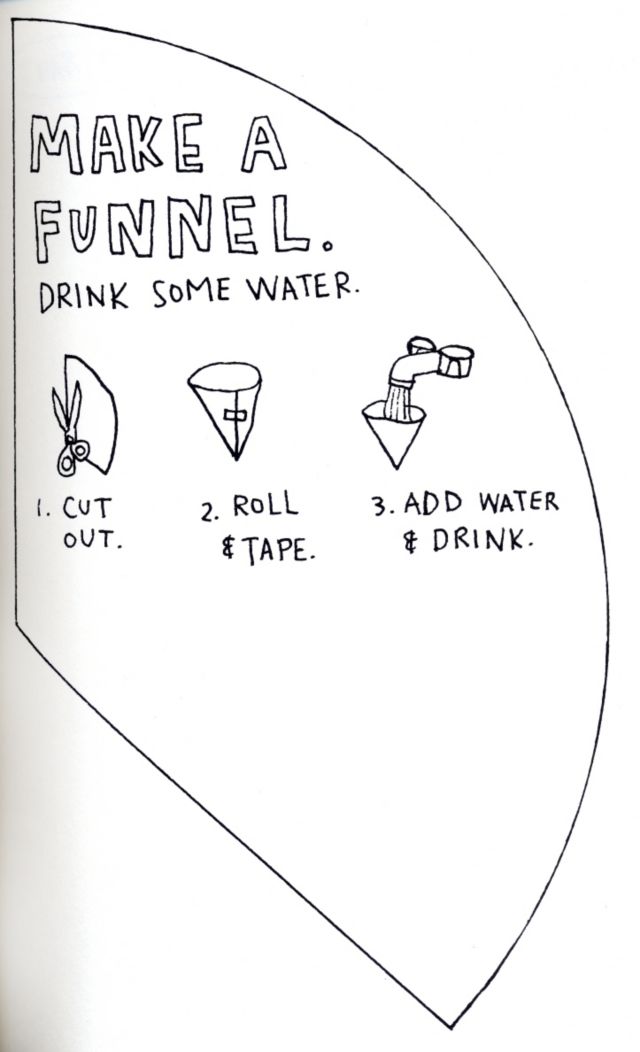 MAKE A
FUNNEL.
DRINK SOME WATER.
1. CUT
OUT.
2. ROLL
& TAPE.
3. ADD WATER
& DRINK.